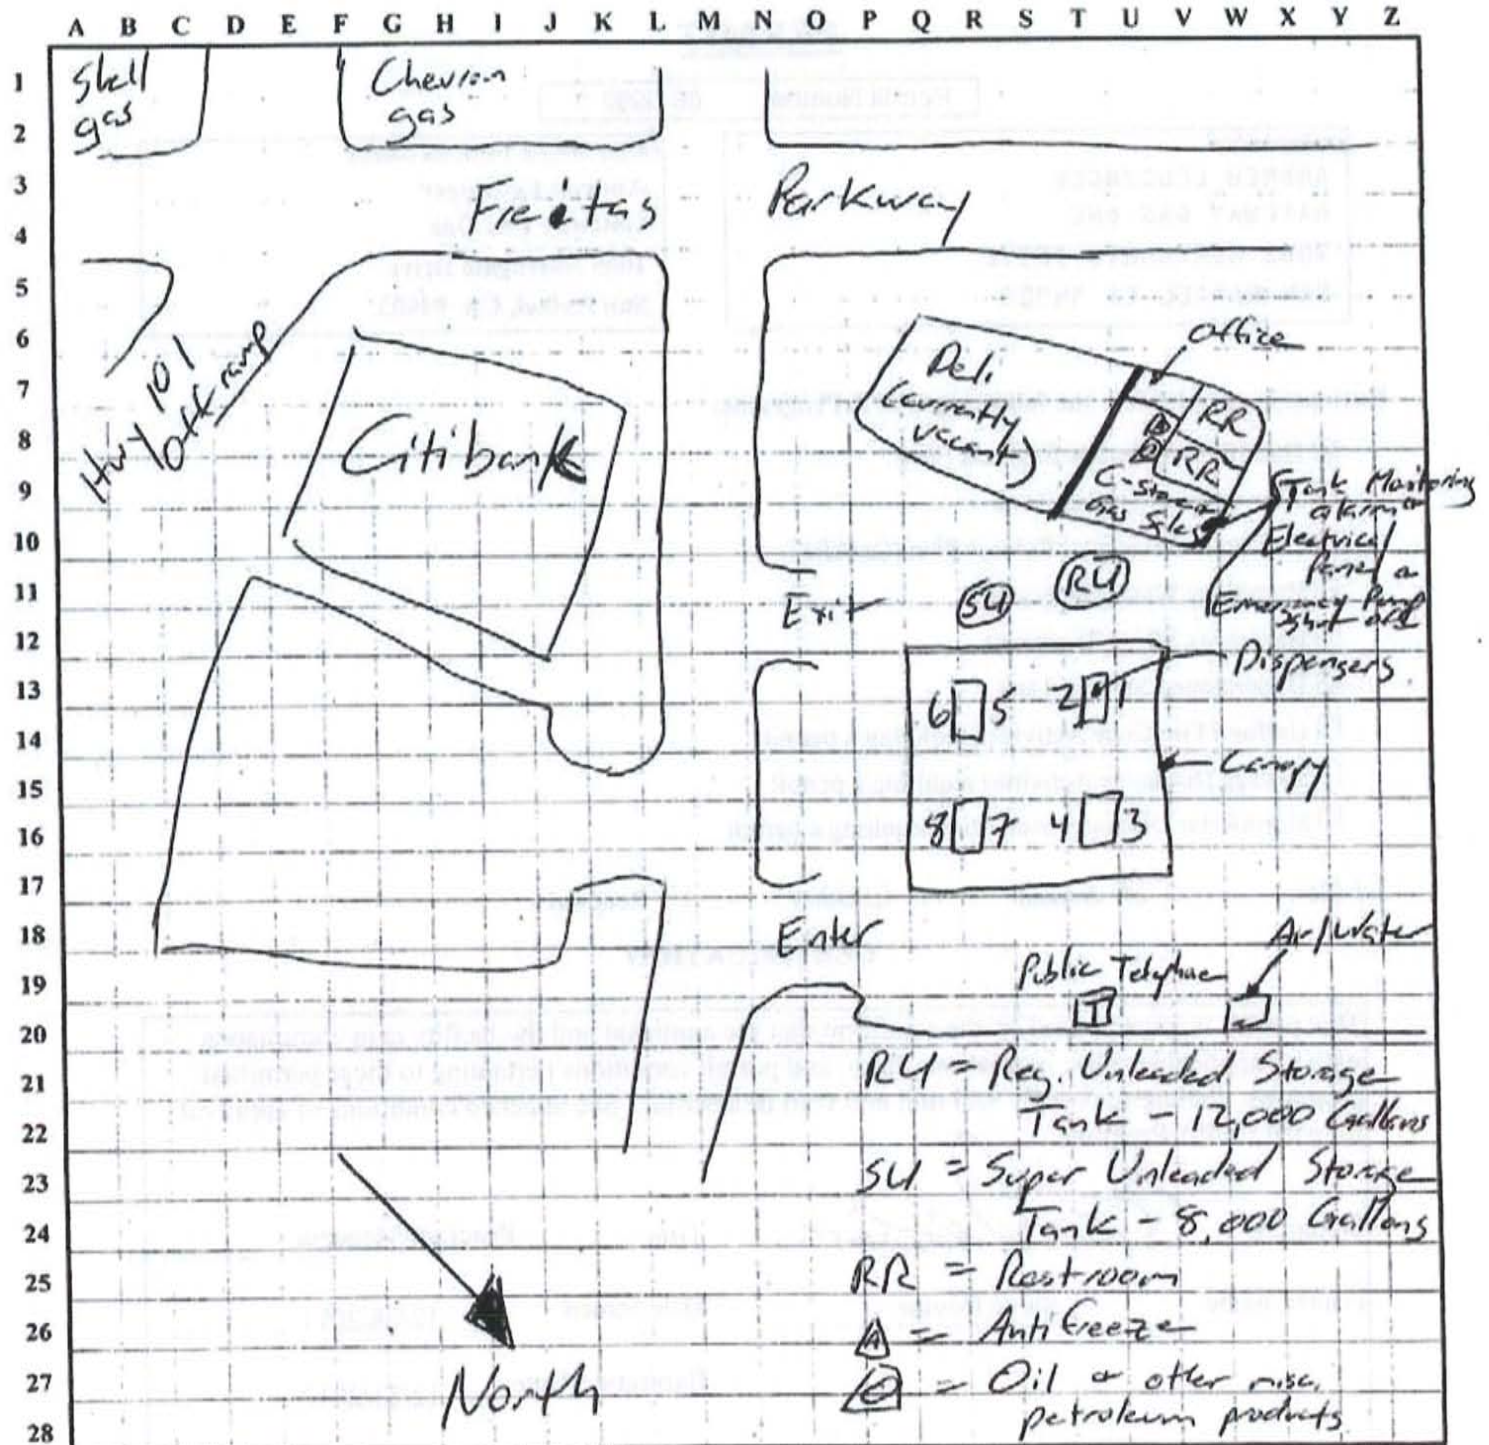 A B C D E F G H I J K L M N O P Q R S T U V W X Y Z
1
2
3
4
5
6
7
8
9
10
11
12
13
14
15
16
17
18
19
20
21
22
23
24
25
26
27
28
Shell
gas
Chevron
gas
Freitas Parkway
Hwy 101
off ramp
Citibank
Deli
(currently
vacant)
Office
RR
A
O
RR
C-Store
Gas Sales
Tank Monitoring
alarm
Electrical
Panel
Emergency Pump
Shut off
Exit
SU
RU
Dispensers
6 5 2 1
Canopy
8 7 4 3
Enter
Air/Water
Public Telephone
T
RU = Reg. Unleaded Storage
Tank - 12,000 Gallons
SU = Super Unleaded Storage
Tank - 8,000 Gallons
RR = Restroom
A = Antifreeze
O = Oil or other misc.
petroleum products
North